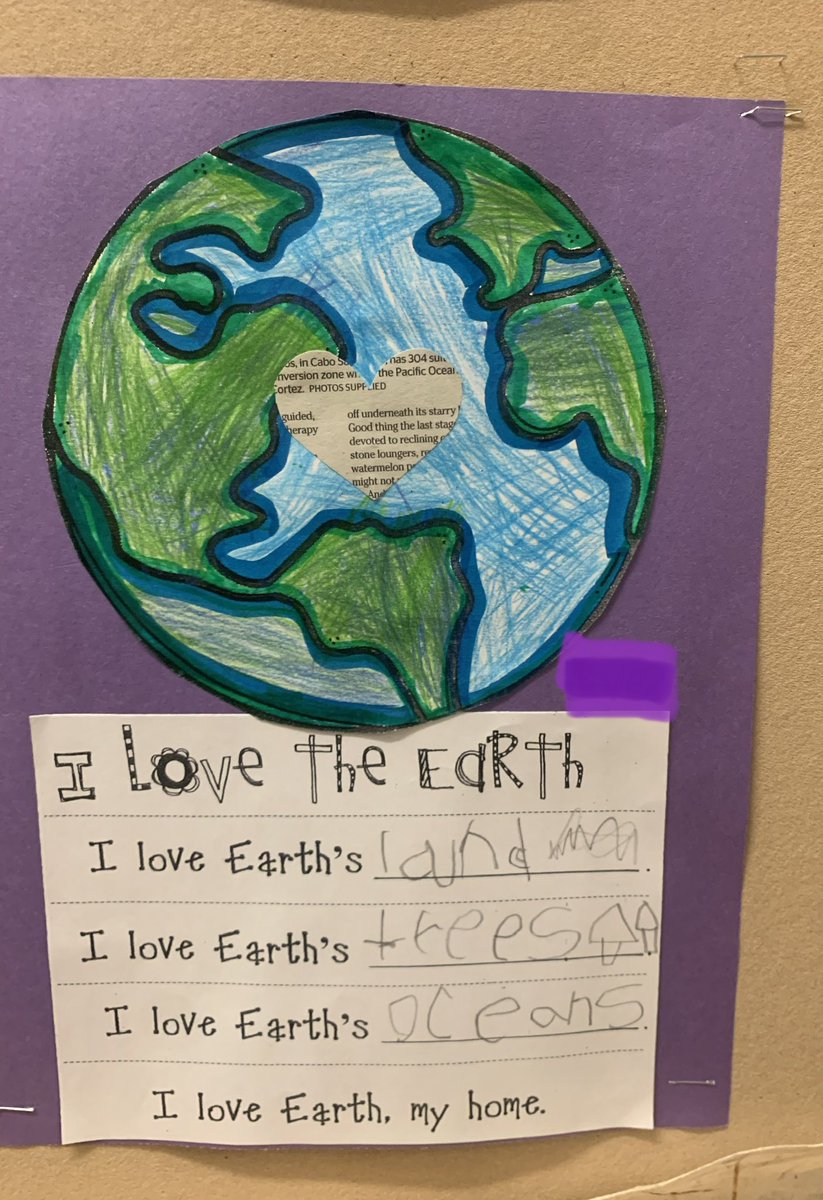 os, in Cabo has 304
nversion zone the Pacific Ocean
Cortez. PHOTOS SUPPLIED
guided,
herapy
off underneath its starry
Good thing the last stag
devoted to reclining
stone loungers,
watermelon
might not
And
I LOVE THE EARTH
I love Earth's land
I love Earth's trees
I love Earth's oceans.
I love Earth, my home.